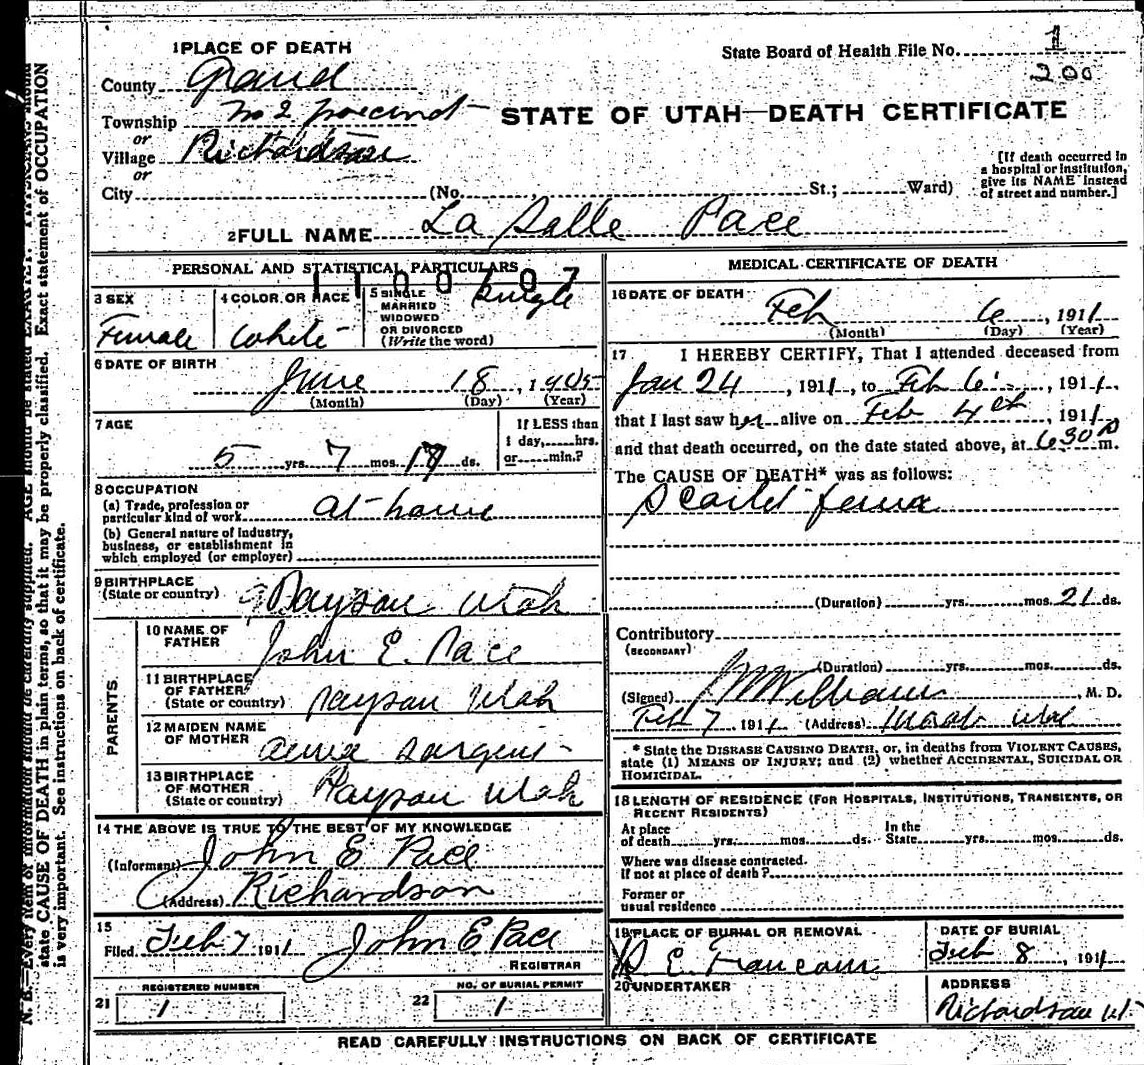 1 PLACE OF DEATH
County Grand
Township No 2 precinct
or
Village Richardson
or
City (No. St.; Ward)
State Board of Health File No. 1
200
STATE OF UTAH—DEATH CERTIFICATE
[If death occurred in
a hospital or institution,
give its NAME instead
of street and number.]
2 FULL NAME La Salle Pace
PERSONAL AND STATISTICAL PARTICULARS
1100707
3 SEX
Female
4 COLOR OR RACE
White
5 SINGLE
MARRIED
WIDOWED
OR DIVORCED
(Write the word)
Single
6 DATE OF BIRTH
June 18, 1905
(Month) (Day) (Year)
7 AGE
5 yrs. 7 mos. ds.
If LESS than
1 day, hrs.
or min.?
8 OCCUPATION
(a) Trade, profession or
particular kind of work at home
(b) General nature of industry,
business, or establishment in
which employed (or employer)
9 BIRTHPLACE
(State or country) Payson Utah
PARENTS
10 NAME OF
FATHER John E. Pace
11 BIRTHPLACE
OF FATHER
(State or country) Payson Utah
12 MAIDEN NAME
OF MOTHER Anna Sargent
13 BIRTHPLACE
OF MOTHER
(State or country) Payson Utah
14 THE ABOVE IS TRUE TO THE BEST OF MY KNOWLEDGE
(Informant) John E Pace
(Address) Richardson
15
Filed Feb 7 1911 John E Pace
REGISTRAR
21 REGISTERED NUMBER
1
22 NO. OF BURIAL PERMIT
1
MEDICAL CERTIFICATE OF DEATH
16 DATE OF DEATH
Feb 6, 1911
(Month) (Day) (Year)
17 I HEREBY CERTIFY, That I attended deceased from
Jan 24, 1911, to Feb 6, 1911,
that I last saw her alive on Feb 4th, 1911,
and that death occurred, on the date stated above, at 6 30 m.
The CAUSE OF DEATH* was as follows:
Scarlet fever
(Duration) yrs. mos. 21 ds.
Contributory
(SECONDARY)
(Duration) yrs. mos. ds.
(Signed) J W Williams, M. D.
Feb 7, 1911 (Address) Moab Utah
* State the DISEASE CAUSING DEATH, or, in deaths from VIOLENT CAUSES,
state (1) MEANS OF INJURY; and (2) whether ACCIDENTAL, SUICIDAL OR
HOMICIDAL.
18 LENGTH OF RESIDENCE (FOR HOSPITALS, INSTITUTIONS, TRANSIENTS, OR
RECENT RESIDENTS)
At place
of death yrs. mos. ds.
In the
State yrs. mos. ds.
Where was disease contracted.
If not at place of death?
Former or
usual residence
19 PLACE OF BURIAL OR REMOVAL
DATE OF BURIAL
Feb 8, 1911
20 UNDERTAKER
ADDRESS
Richardson Ut
READ CAREFULLY INSTRUCTIONS ON BACK OF CERTIFICATE
N. B.—Every item of information should be carefully supplied. AGE should be stated EXACTLY. PHYSICIANS should
state CAUSE OF DEATH in plain terms, so that it may be properly classified. Exact statement of OCCUPATION
is very important. See instructions on back of certificate.